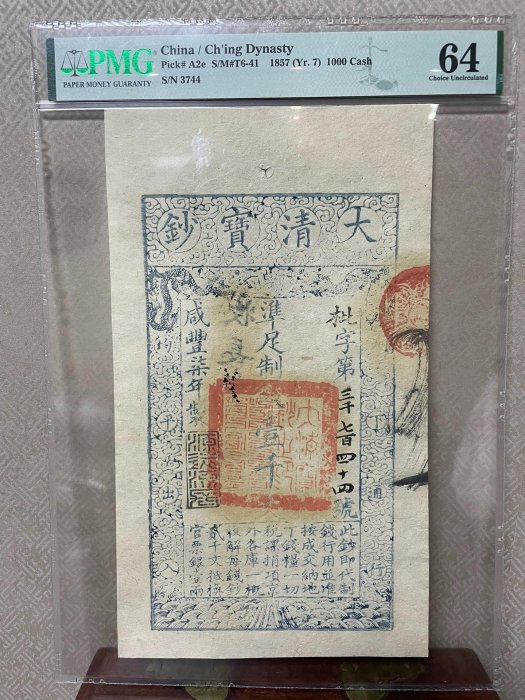 PMG
PAPER MONEY GUARANTY
China / Ch'ing Dynasty
Pick# A2e S/M#T6-41 1857 (Yr. 7) 1000 Cash
S/N 3744
64
Choice Uncirculated
大清寶鈔
枇字第三千七百四十四號
準足制錢壹千
咸豐柒年
通行
均平出入
此鈔即代制
錢行用並准
按成交納地
丁錢糧一切
稅課捐項京
外各庫一概
收解每錢鈔
貳千文抵換
官票銀壹兩